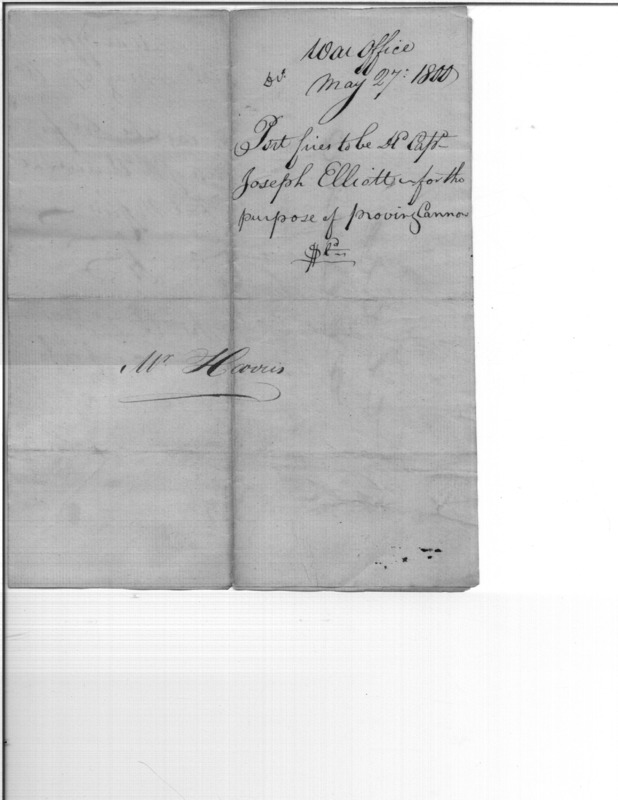 War Office
May 27: 1800
Port fires to be Dd. Capt.
Joseph Elliott for the
purpose of proving Cannon
Mr Harris